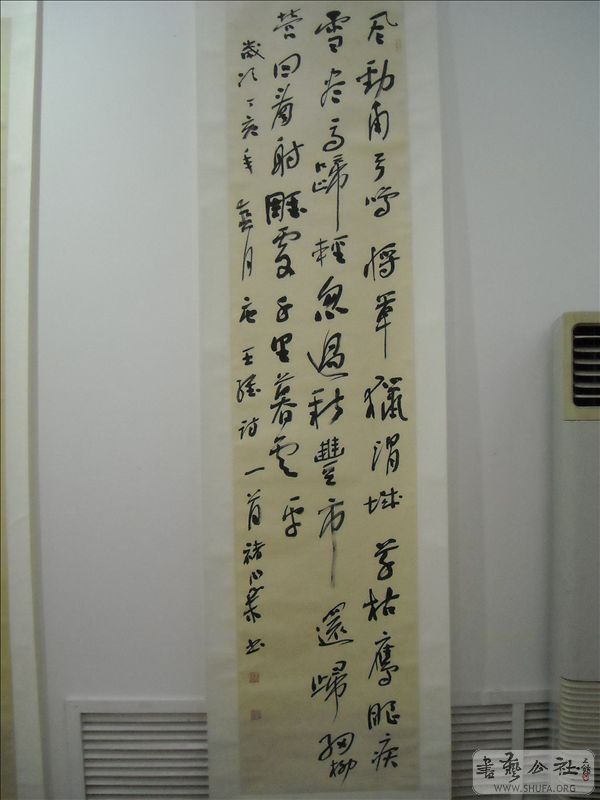 風勁角弓鳴將軍獵渭城草枯鷹眼疾
雪盡馬蹄輕忽過新豐市還歸細柳
營回看射雕處千里暮雲平
歲次丁亥年春月唐王維詩一首褚書
書藝公社
WWW.SHUFA.ORG